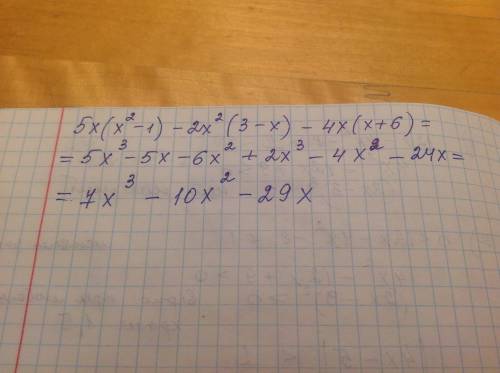 5x(x²-1) - 2x²(3-x) - 4x(x+6) =
= 5x³ - 5x - 6x² + 2x³ - 4x² - 24x =
= 7x³ - 10x² - 29x